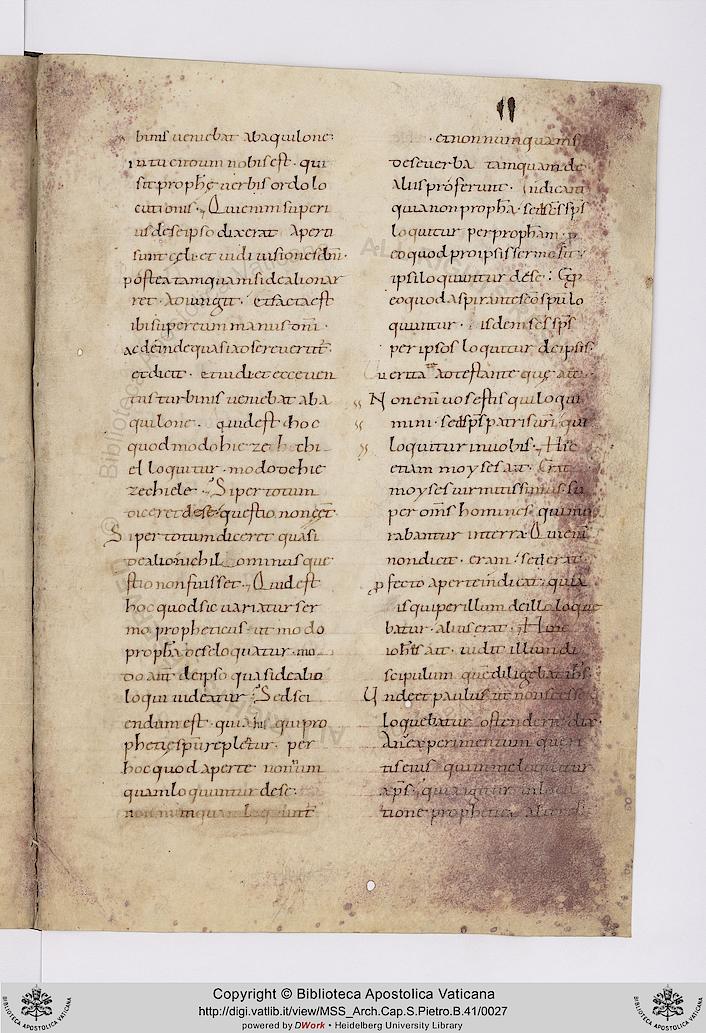 binis veniebat ab aquilone·
intueri tum nobis est · qui
sit prophę verbis ordo lo
cutionis · Qui enim superi
us de se ipso dixerat Aperti
sunt celi et vidi visiones dni ·
postea tamquam si de alio nar
ret · adiungit · et facta est
ibi super eum manus dni ·
ac deinde quasi ad se revertit ·
et dicit · et vidi et ecce ven
tus turbinis veniebat ab a
quilone · quid est hoc
quod modo hiezechi
el loquitur · modo de hie
zechiele · Si per totum
diceret de se · questio non eet ·
Si per totum diceret quasi
de alio nichil ominus que
stio non fuisset · Quid est
hoc quod sic variatur ser
mo propheticus · ut modo
propha de se loquatur · mo
do aut de ipso quasi de alio
loqui videatur · Sed sci
endum est · quia hii qui pro
phetię spu replētur · per
hoc quod aperte non num
quam loquuntur de se ·
non numquam loquunt
· et non numquam sic
de se verba tamquam de
aliis proferunt · indicant
quia non propha · sed scs sps
loquitur per propham · p
eo quod pro ipsis sermo fit ·
ipsi loquuntur de se ·
eo quod aspirante sco spu lo
quuntur · isdem scs sps
per ipsos loquitur de ipsis ·
veritate adtestante quę ait ·
Non eni vos estis qui loqui
mini · sed sps patris uri · qui
loquitur in vobis · Hic
etiam moyses ait · Erat
moyses vir mitissimus su
per oms homines · qui mo
rabantur in terra · Qui eni
non dicit · eram · sed erat ·
pfecto aperte indicat · quia
is qui per illum de illo loque
batur · alius erat · Hinc
iohs ait · vidit illum di
scipulum quē diligebat ihs
Unde et paulus ut non se esse
loquebatur ostenderet · dix
An experimentum queri
tis eius qui in me loquitur
xps · qui agitur in locu
tione prophetica